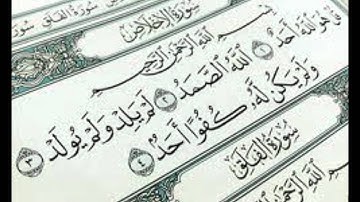 سُورَةُ الفَلَقِ
سُورَةُ الإِخْلَاصِ
بِسْمِ اللَّهِ الرَّحْمَٰنِ الرَّحِيمِ
قُلْ هُوَ اللَّهُ أَحَدٌ ١ اللَّهُ الصَّمَدُ ٢ لَمْ يَلِدْ وَلَمْ يُولَدْ ٣
وَلَمْ يَكُن لَّهُ كُفُوًا أَحَدٌ ٤
سُورَةُ الفَلَقِ
بِسْمِ اللَّهِ الرَّحْمَٰنِ